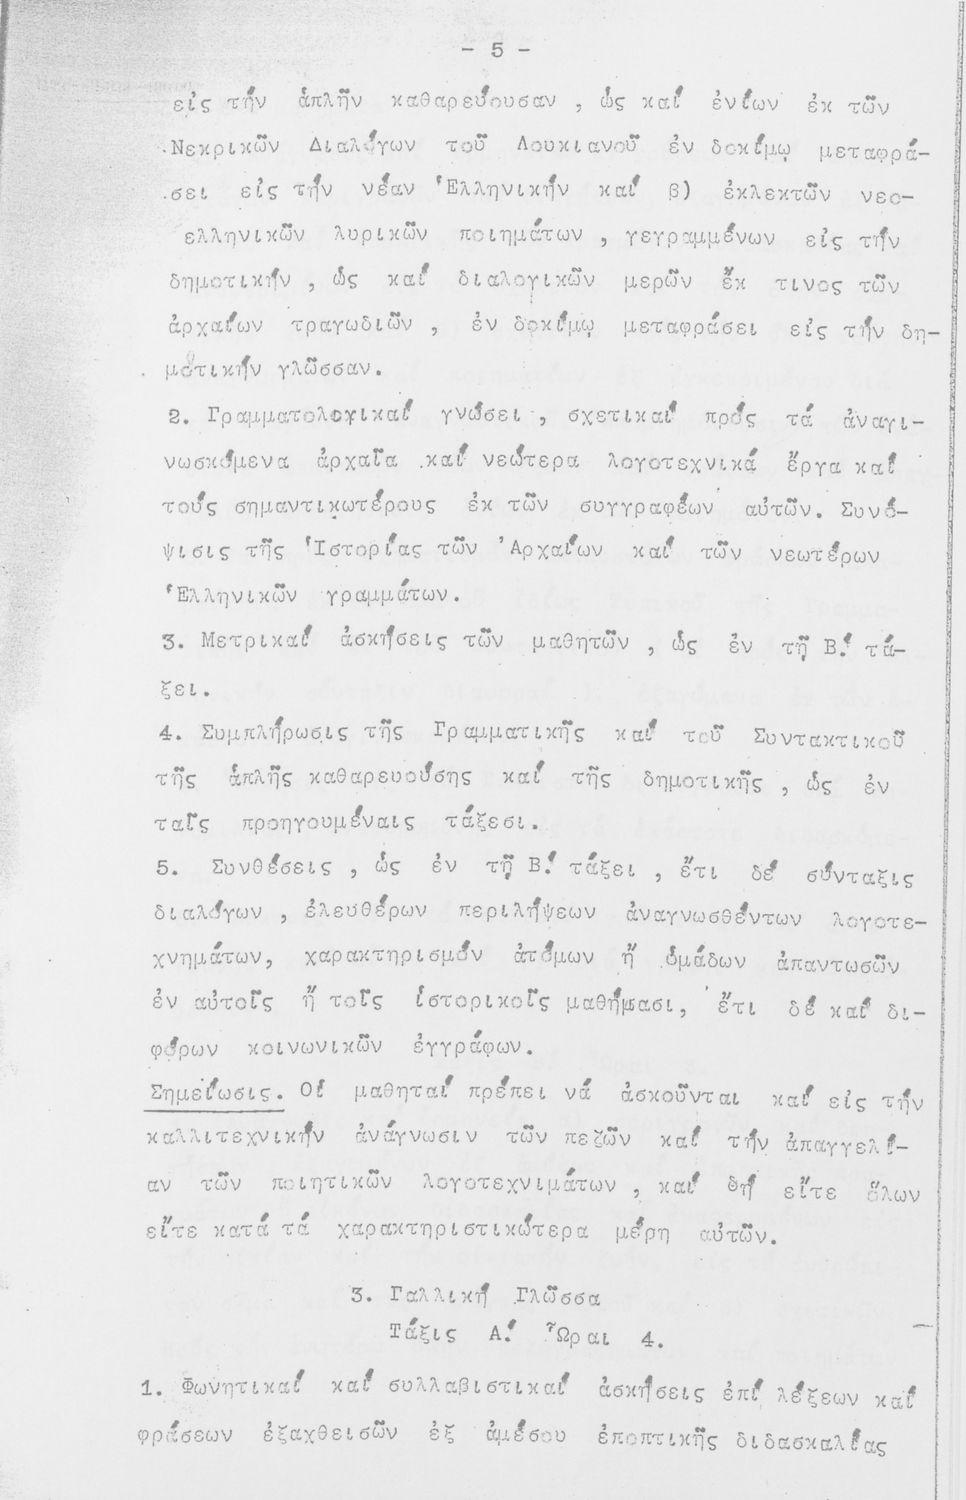 - 5 -
εἰς τήν ἁπλῆν καθαρεύουσαν , ὡς καί ἐνίων ἐκ τῶν
Νεκρικῶν Διαλόγων τοῦ Λουκιανοῦ ἐν δοκίμῳ μεταφρά-
σει εἰς τήν νέαν Ἑλληνικήν καί β) ἐκλεκτῶν νεο-
ελληνικῶν λυρικῶν ποιημάτων , γεγραμμένων εἰς τήν
δημοτικήν , ὡς καί διαλογικῶν μερῶν ἔκ τινος τῶν
ἀρχαίων τραγωδιῶν , ἐν δοκίμῳ μεταφράσει εἰς τήν δη-
μοτικήν γλῶσσαν.
2. Γραμματολογικαί γνώσει , σχετικαί πρός τά ἀναγι-
νωσκόμενα ἀρχαῖα καί νεώτερα λογοτεχνικά ἔργα καί
τούς σημαντικωτέρους ἐκ τῶν συγγραφέων αὐτῶν. Συνό-
ψισις τῆς Ἱστορίας τῶν Ἀρχαίων καί τῶν νεωτέρων
Ἑλληνικῶν γραμμάτων.
3. Μετρικαί ἀσκήσεις τῶν μαθητῶν , ὡς ἐν τῇ Β΄. τά-
ξει.
4. Συμπλήρωσις τῆς Γραμματικῆς καί τοῦ Συντακτικοῦ
τῆς ἁπλῆς καθαρευούσης καί τῆς δημοτικῆς , ὡς ἐν
ταῖς προηγουμέναις τάξεσι.
5. Συνθέσεις , ὡς ἐν τῇ Β΄. τάξει , ἔτι δέ σύνταξις
διαλόγων , ἐλευθέρων περιλήψεων ἀναγνωσθέντων λογοτε-
χνημάτων, χαρακτηρισμόν ἀτόμων ἤ ὁμάδων ἀπαντωσῶν
ἐν αὐτοῖς ἤ τοῖς ἱστορικοῖς μαθήμασι, ἔτι δέ καί δι-
φόρων κοινωνικῶν ἐγγράφων.
Σημείωσις. Οἱ μαθηταί πρέπει νά ἀσκοῦνται καί εἰς τήν
καλλιτεχνικήν ἀνάγνωσιν τῶν πεζῶν καί τήν ἀπαγγελί-
αν τῶν ποιητικῶν λογοτεχνιμάτων , καί δή εἴτε ὅλων
εἴτε κατά τά χαρακτηριστικώτερα μέρη αὐτῶν.
3. Γαλλική Γλῶσσα
Τάξις Α΄. Ὧραι 4.
1. Φωνητικαί καί συλλαβιστικαί ἀσκήσεις ἐπί λέξεων καί
φράσεων ἐξαχθεισῶν ἐξ ἀμέσου ἐποπτικῆς διδασκαλίας